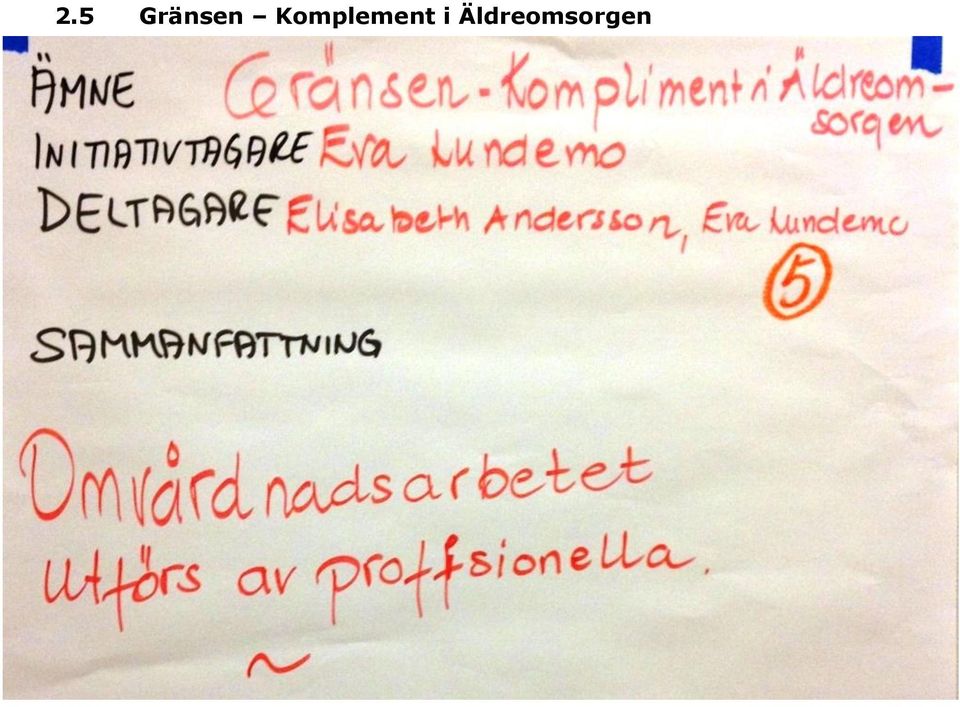 2.5 Gränsen – Komplement i Äldreomsorgen
ÄMNE Gränsen - Kompliment i Äldreom-
sorgen
INITIATIVTAGARE Eva Lundemo
DELTAGARE Elisabeth Andersson, Eva Lundemo
5
SAMMANFATTNING
Omvårdnadsarbetet
utförs av proffsionella.
~